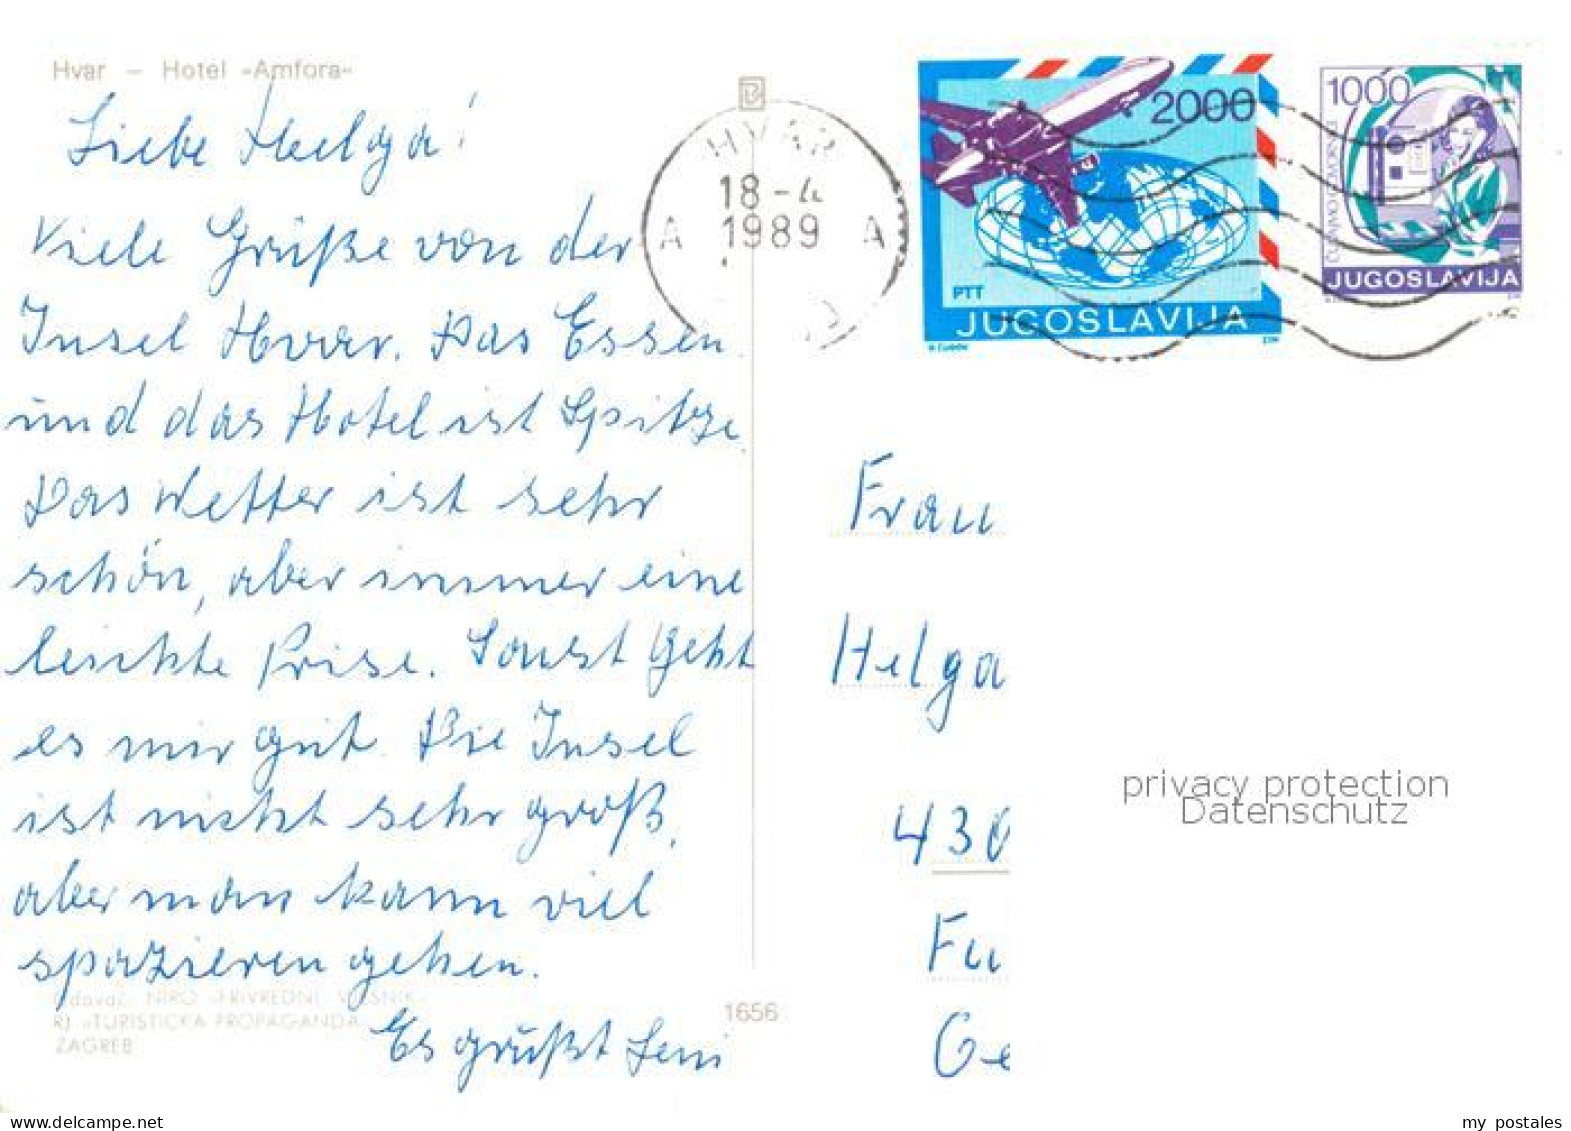 Hvar — Hotel »Amfora«
Liebe Helga!
Viele Grüße von der
Insel Hvar. Das Essen
und das Hotel ist Spitze.
Das Wetter ist sehr
schön, aber immer eine
leichte Prise. Sonst geht
es mir gut. Die Insel
ist nicht sehr groß,
aber man kann viel
spazieren gehen.
Es grüßt Leni
Izdavač: NIRO »PRIVREDNI VJESNIK«
RJ »TURISTIČKA PROPAGANDA«
ZAGREB
1656
HVAR
18-4
1989
A A
2000
PTT
JUGOSLAVIJA
1000
JUGOSLAVIJA
Frau
Helga
430
Fu
Ge
privacy protection
Datenschutz
www.delcampe.net
my_postales